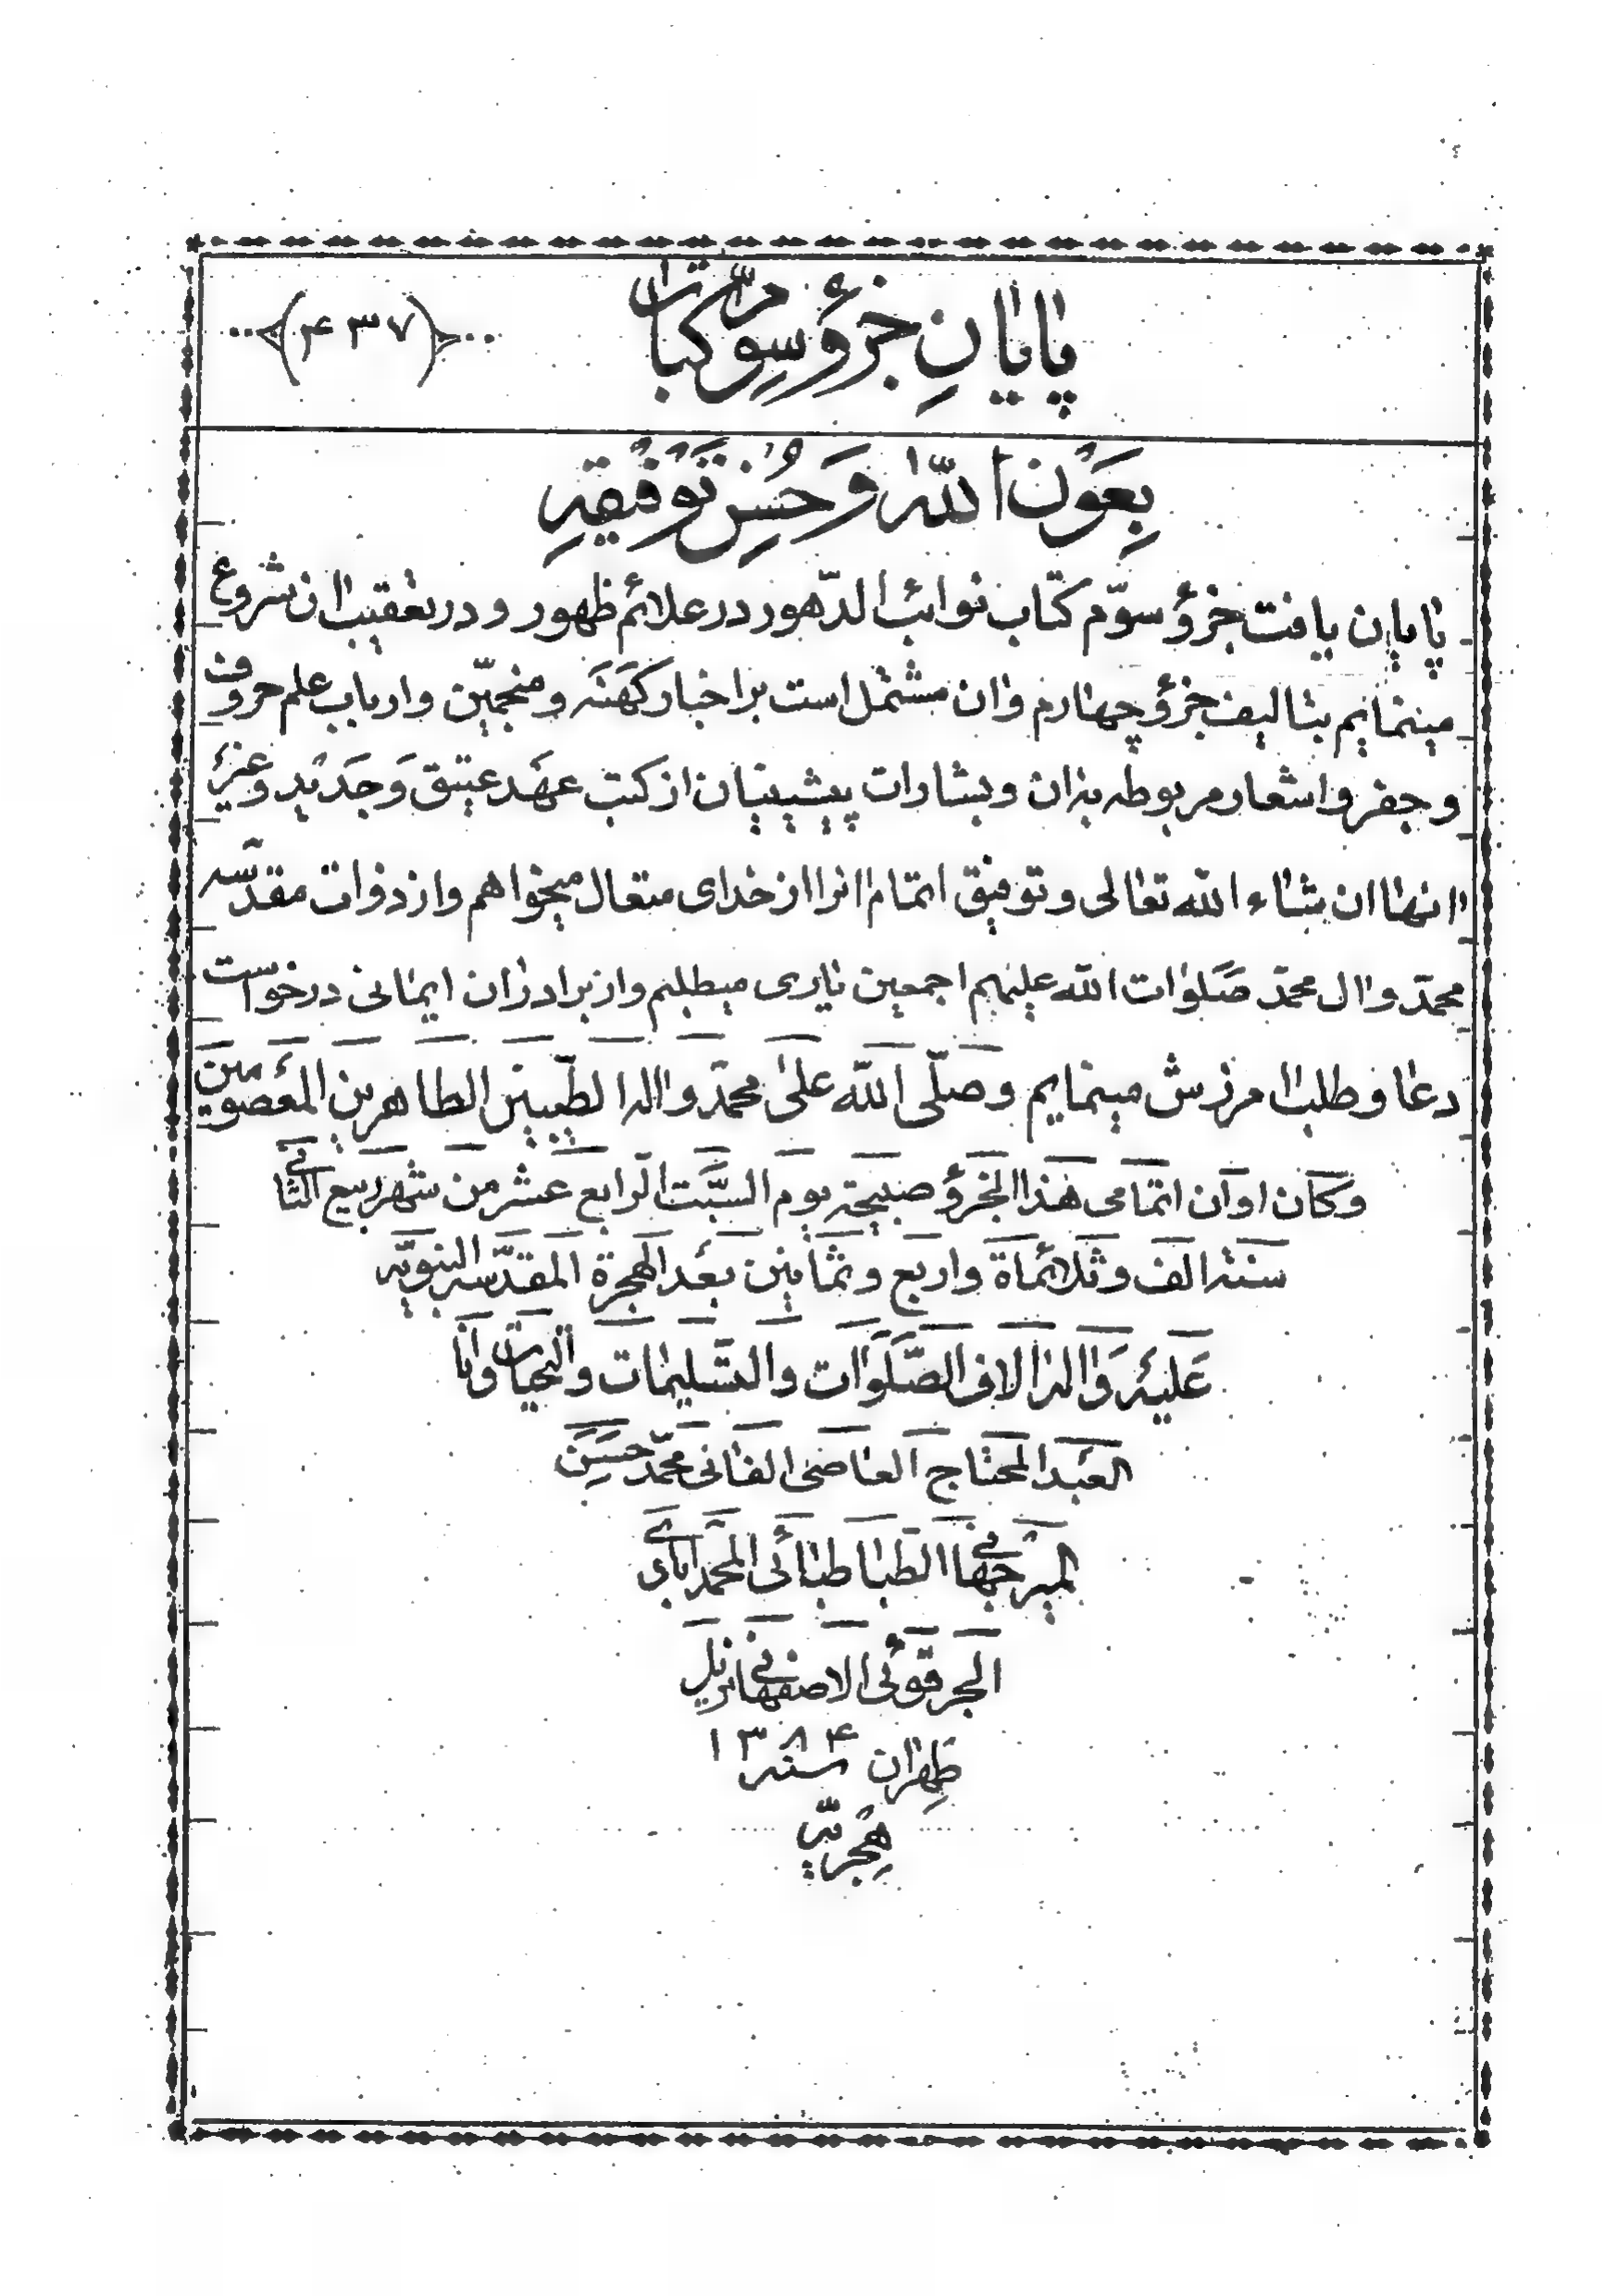 پایانِ جزؤ سوّم کتاب
(۴۳۷)
بِعَوْن اللّٰه وَ حُسْنِ تَوْفیقِهِ
پایان یافت جزؤ سوّم کتاب نوائب الدّهور در علائم ظهور و در تعقیب ان شروع
مینمایم بتالیف جزؤ چهارم وان مشتمل است بر اخبار کهَنَه و منجمیّن و ارباب علم حروف
و جفر و اشعار مربوطه بدان و بشارات پیشینیان از کتب عهد عتیق وَ جَدید و غیر
انها ان شاء اللّه تعالی و توفیق اتمام انرا از خدای متعال میخواهم و از ذوات مقدّسه
محمّد و ال محمّد صَلَوات اللّه علیهم اجمعین یاری میطلبم و از برادران ایمانی درخواست
دعا و طلب امرزش مینمایم وصلّی اللّه علیٰ محمّد واله الطّیبین الطاهرین المَعصومین
وکان اوان اتمامی هٰذا الجزؤ صبیحة یوم السّبت الرابع عشر من شهر ربیع الثانی
سنة الف و ثلاثمأة واربع وثمانین بعد الهجرة المقدّسه النبویّه
عَلیه وَاله الاف الصّلَوات والتسلیمات والتحیات وانا
العبد المحتاج العاصی الفانی محمّد حسَن
المیرجهانی الطباطبائی المحمّدآبادی
الجرقوئی الاصفهانی نزیل
طهران سنه ۱۳۸۴
هِجریّه